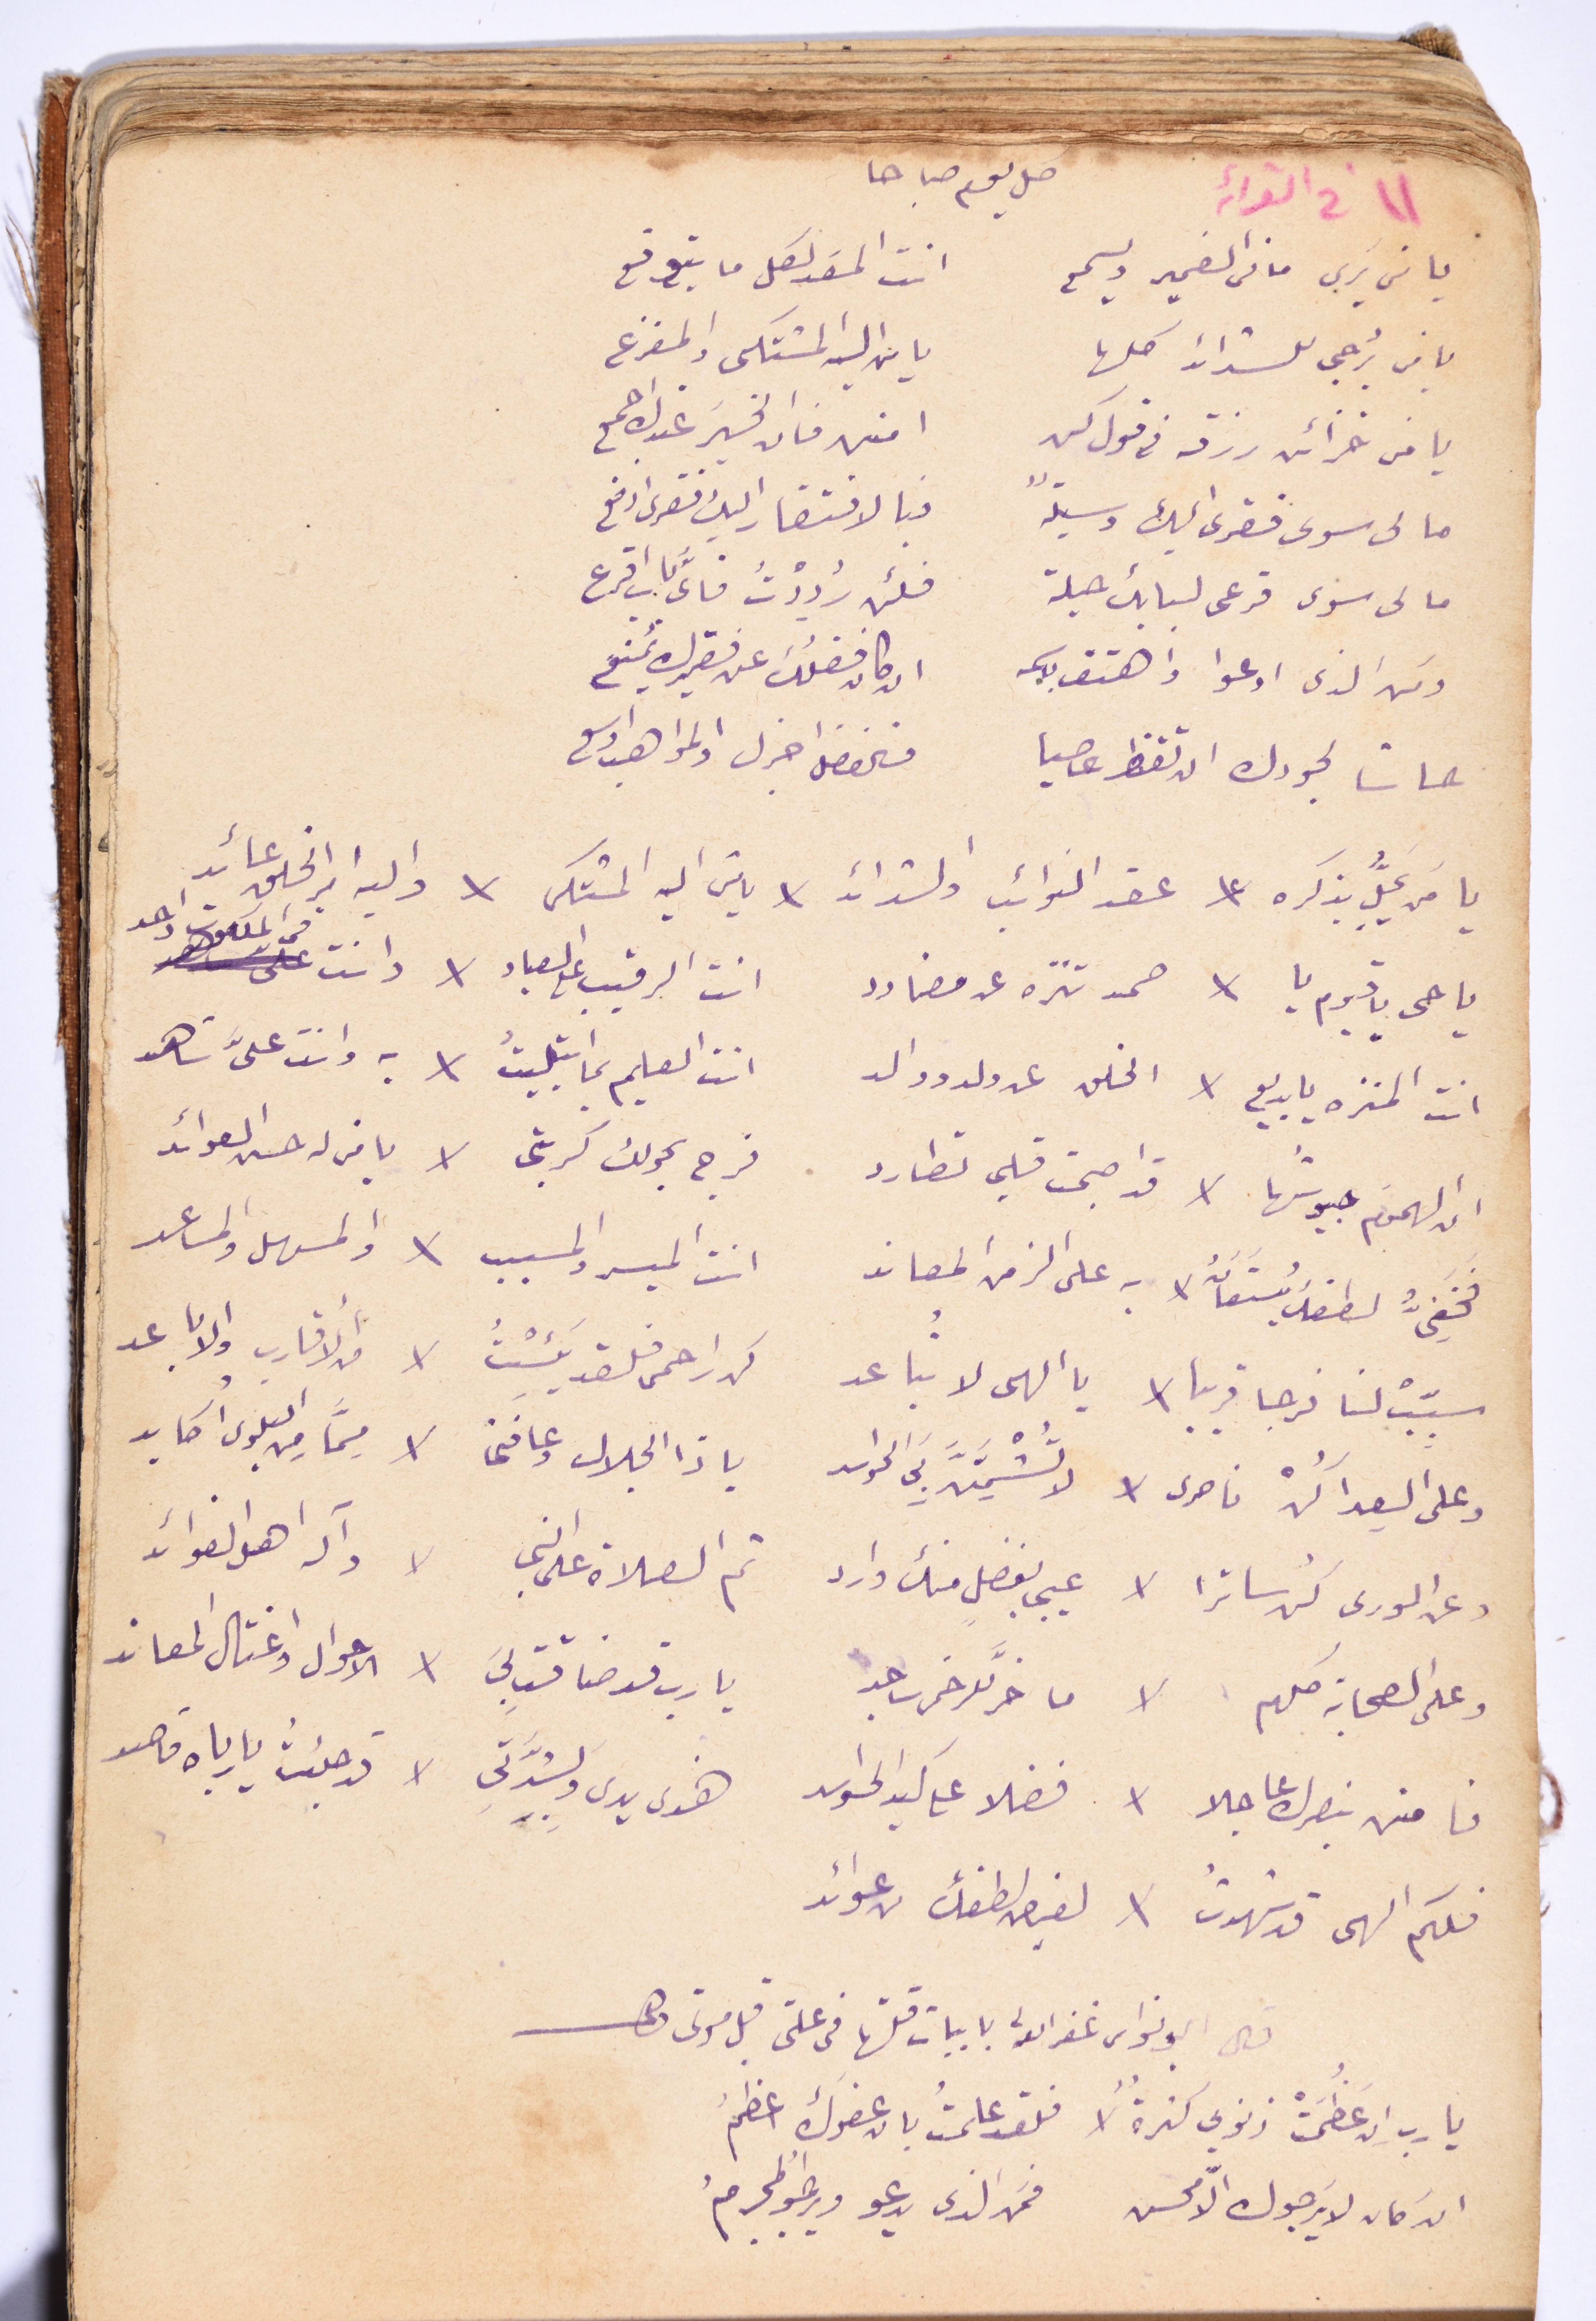 ١١ في القراءة
كل يوم صباحا
يا من يرى ما في الضمير ويسمع انت المعد لكل ما يتوقع
يا من يُرجى للشدائد كلها يا من اليه المشتكى والمفزع
يا من خزائن رزقه في قول كن امنن فان الخيرَ عندك اجمع
مالى سوى فقرى اليك وسيلةٌ فبالافتقار اليك فقرى ادفع
مالى سوى قرعى لبابك حيلة فلئن رُدِدْتُ فاىَّ باب اقرع
ومن الذى ادعوا واهتف باسمه ان كان فضلُك عن فقيرك يُمنع
حاشا لجودك ان تقنط عاصيا فالفضل اجزل والمواهب اوسع
يا مَن يُحَلُّ بذكره × عقد النوائب والشدائد × يا من اليه المشتكى × واليه امر الخلق عائد
يا حى يا قيوم يا × صمد تنزه عن مضادد انت الرقيب على العباد × وانت فى الملكوت واحد
انت المنزه يا بديع × الخلق عن ولد ووالد انت العليم بما ابتليتُ × به وانت علىَّ شاهد
ان الهموم جيوشُها × قد اصبحت قلبى تطارد فرج بحولك كربتى × يا من له حسن العوائد
فَخَفِىُّ لطفك يُستَعانُ × به على الزمن المعاند انت الميسر والمسبب × والمسهل والمساعد
سَبِّبْ لنا فرجا قريبا × يا الهى لا تباعد كن راحمى فلقد يَئِسْتُ × من الاقارب والاباعد
وعلى العدا كُنْ ناصرى × لا تُشْمِتَنَّ بِىَ الحواسد يا ذا الجلال وعافنى × مِمَّا مِن البلوى اُكابد
وعن الورى كُن ساترا × عيبى بفضلٍ منك وارد ثم الصلاة على النبى × وآله اهل الفوائد
وعلى الصحابة كلهم × ما خرَّ للرحمن ساجد يا رب قد ضاقت بِىَ × الاحوال واغتال المعاند
فامنن بنصرك عاجلا × فضلا على كيد الحواسد هذى يدى وَبِشِدَّتِى × قد جئتُ يا رباه قاصد
فلكم الهى قد شهدتُ × لفيض لطفك من عوائد
قال ابو نواس غفر الله لى بابيات قلتها فى علتى قبل موتى وهى
يا رب اِن عَظُمَتْ ذنوبي كثرةً × فلقد علمتُ بان عفوَكَ اعظمُ
ان كان لا يرجوك الّا محسن فمَن الذى يدعو ويرجو المجرمُ